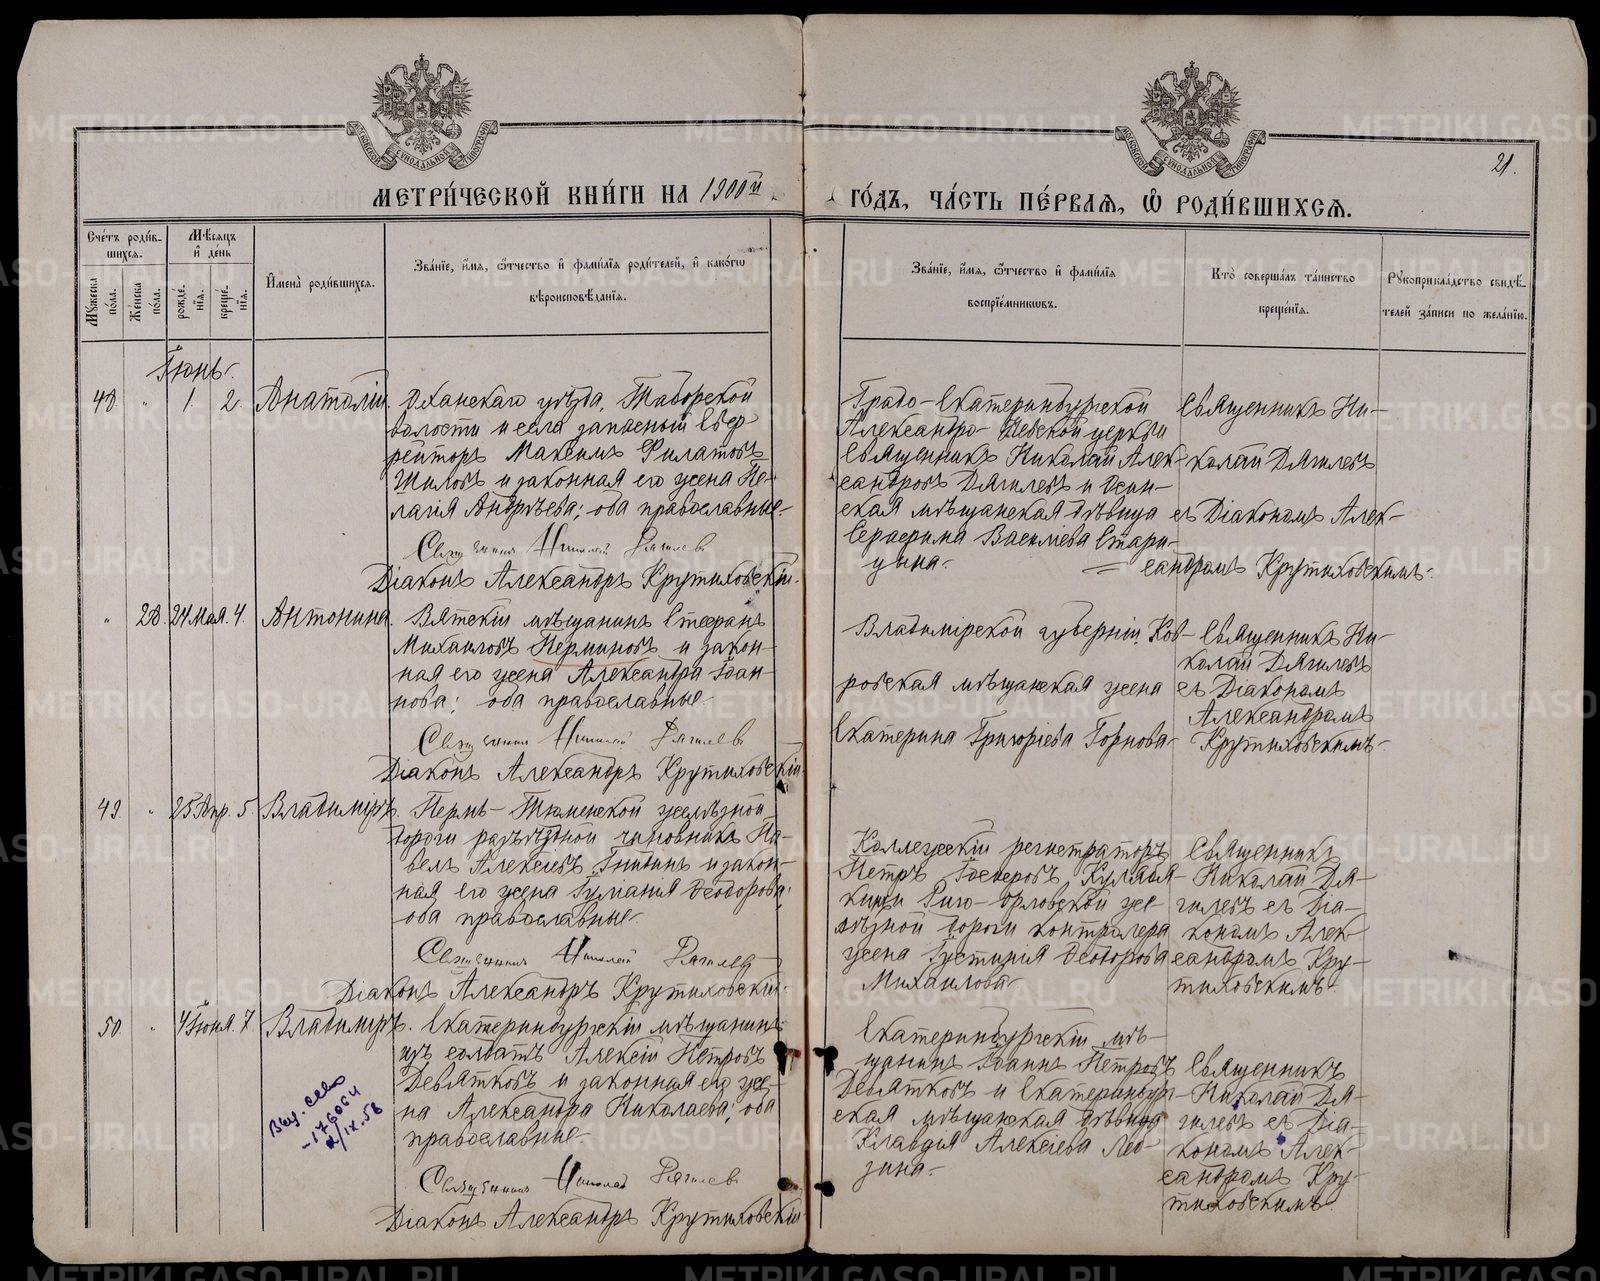 МЕТРИ́ЧЕСКОЙ КНИ́ГИ НА 1900й
ГО́ДЪ, ЧА́СТЬ ПЕ́РВАѦ, Ѡ РОДИ́ВШИХСѦ.
21.
Сче́тъ роди́в-
шихсѧ.
Мѣ́сѧцъ
и҆ де́нь
Мꙋ́жеска
по́ла.
Же́нска
по́ла.
рожде́-
нїѧ.
креще́-
нїѧ.
И҆мена̀ роди́вшихсѧ.
Зва́нїе, и҆́мѧ, ѻ҆́тчество и҆ фами́лїѧ роди́телей, и҆ како́гѡ
вѣроисповѣ́данїѧ.
Зва́нїе, и҆́мѧ, ѻ҆́тчество и҆ фами́лїѧ
воспрїе́мникѡвъ.
Кто̀ соверша́лъ та́инство
креще́нїѧ.
Рꙋкоприкла́дство свидѣ́-
телей за́писи по жела́нїю.
Іюнь.
48 " 1. 2. Анатолій.
Оханскаго уѣзда, Таборской
волости и села запасный Еф-
рейторъ Максимъ Филатовъ
Шиловъ и законная его жена Пе-
лагія Андреѣва; оба православные.
Священникъ Николай Дягилевъ
Діаконъ Александръ Крутиховскій.
Градо-Екатеринбургской
Александро-Невской церкви
Священникъ Николай Алек-
сандровъ Дягилевъ и Осин-
ская мѣщанская дѣвица
Серафима Васильева Стари-
цына.
Священникъ Ни-
колай Дягилевъ
съ Діакономъ Алек-
сандромъ Крутиховскимъ.
" 28. 24 Мая. 4. Антонина.
Вятскій мѣщанинъ Стефанъ
Михаиловъ Перминовъ и закон-
ная его жена Александра Іоан-
нова; оба православные.
Священникъ Николай Дягилевъ
Діаконъ Александръ Крутиховскій.
Владимірской губерніи, Ков-
ровская мѣщанская жена
Екатерина Григоріева Горнова.
Священникъ Ни-
колай Дягилевъ
съ Діакономъ
Александромъ
Крутиховскимъ.
49. " 25 Апр. 5 Владиміръ.
Пермь-Тюменской желѣзной
дороги разъѣздной чиновникъ Па-
велъ Алексіевъ и закон-
ная его жена Ѳеодорова;
оба православные.
Священникъ Николай Дягилевъ
Діаконъ Александръ Крутиховскій.
Коллежскій регистраторъ
Петръ
Риго-Орловской же-
лѣзной дороги контролера
жена Іустинія Ѳеодорова
Михаилова.
Священникъ
Николай Дя-
гилевъ съ Діа-
кономъ Алек-
сандромъ Кру-
тиховскимъ.
50. " 4 Іюня. 7 Владиміръ.
Екатеринбургскій мѣщанинъ
изъ солдатъ Алексій Петровъ
Девятковъ и законная его же-
на Александра Николаева; оба
православные.
Священникъ Николай Дягилевъ
Діаконъ Александръ Крутиховскій.
Екатеринбургскій мѣ-
щанинъ Іоаннъ Петровъ
Девятковъ и Екатеринбург-
ская мѣщанская дѣвица
Клавдія Алексіева Лео-
зина.
Священникъ
Николай Дя-
гилевъ съ Діа-
кономъ Алек-
сандромъ Кру-
тиховскимъ.
2/IX.58
METRIKI.GASO-URAL.RU